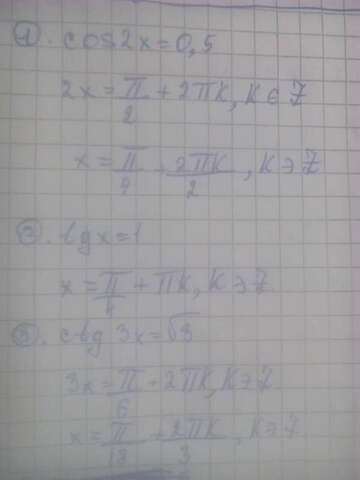 ① cos2x=0,5
2x=π/2+2πk, k∈Z
x=π/4+2πk/2, k∈Z
② tgx=1
x=π/4+πk, k∈Z
③ ctg 3x=√3
3x=π/6+2πk, k∈Z
x=π/18+2πk/3, k∈Z